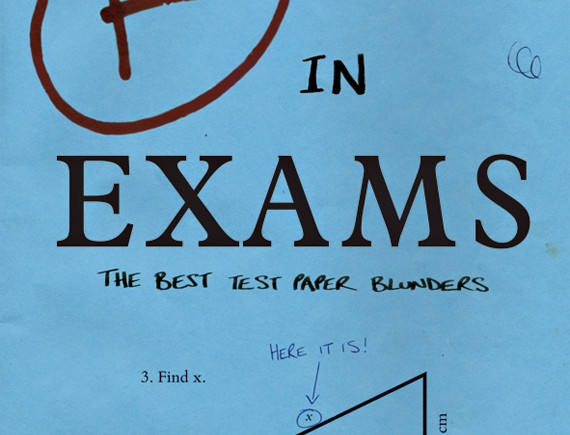 F
IN
EXAMS
THE BEST TEST PAPER BLUNDERS
HERE IT IS!
3. Find x.
x
cm